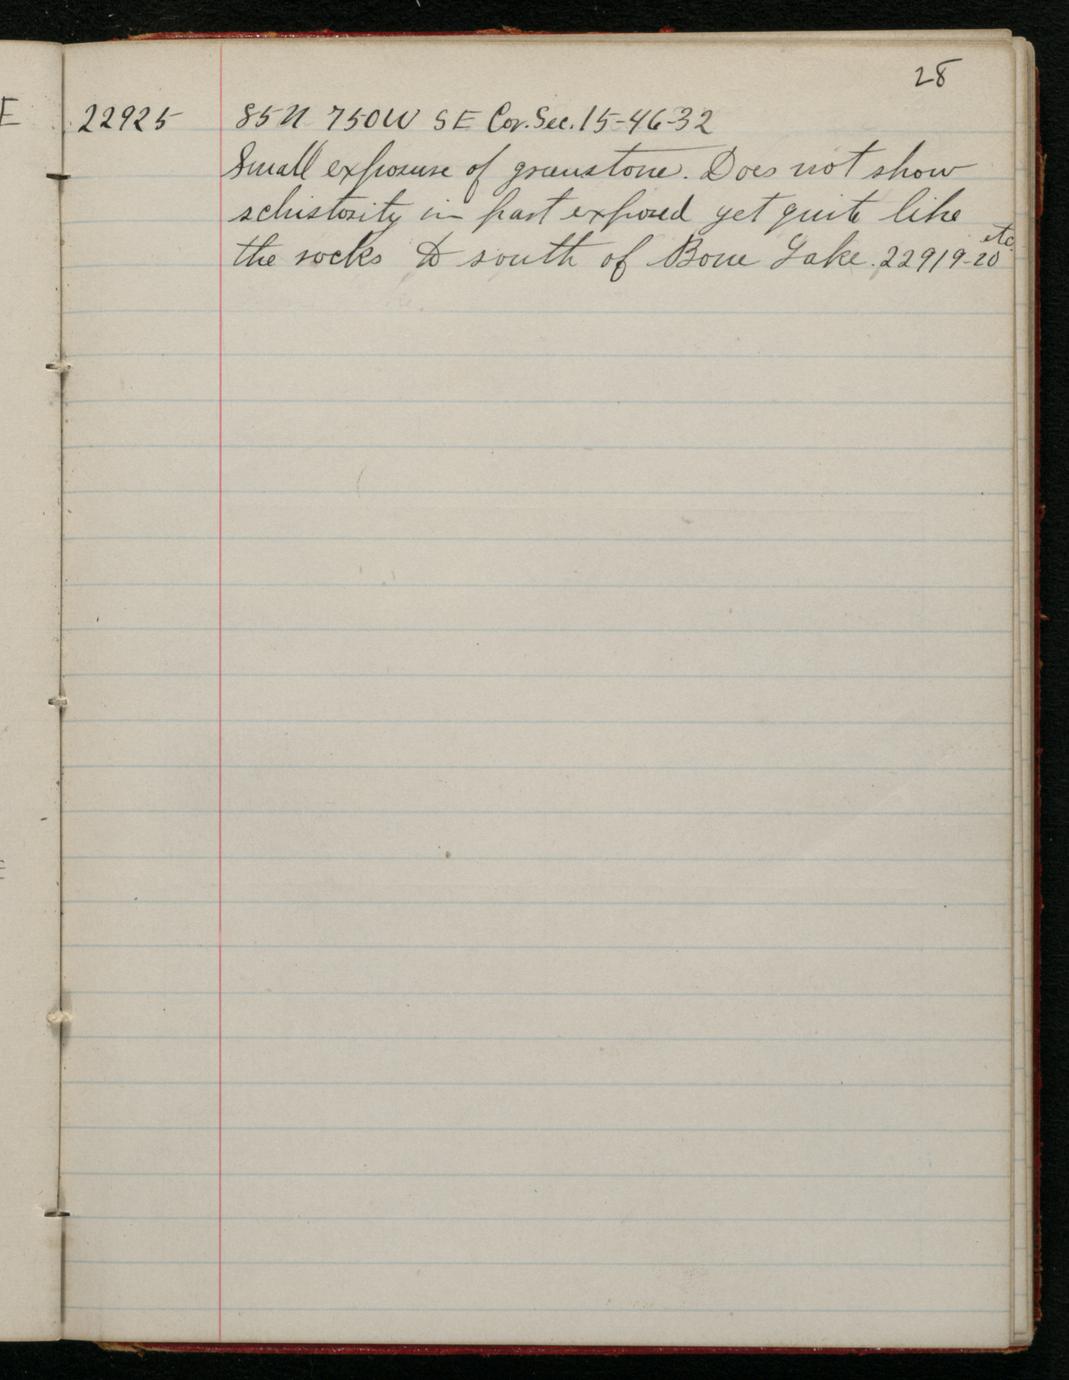 28
E
22925 85N 750W SE Cor. Sec. 15-46-32
Small exposure of greenstone. Does not show
schistosity in part exposed yet quite like
the rocks to south of Bone Lake. 22919-20 etc.
E